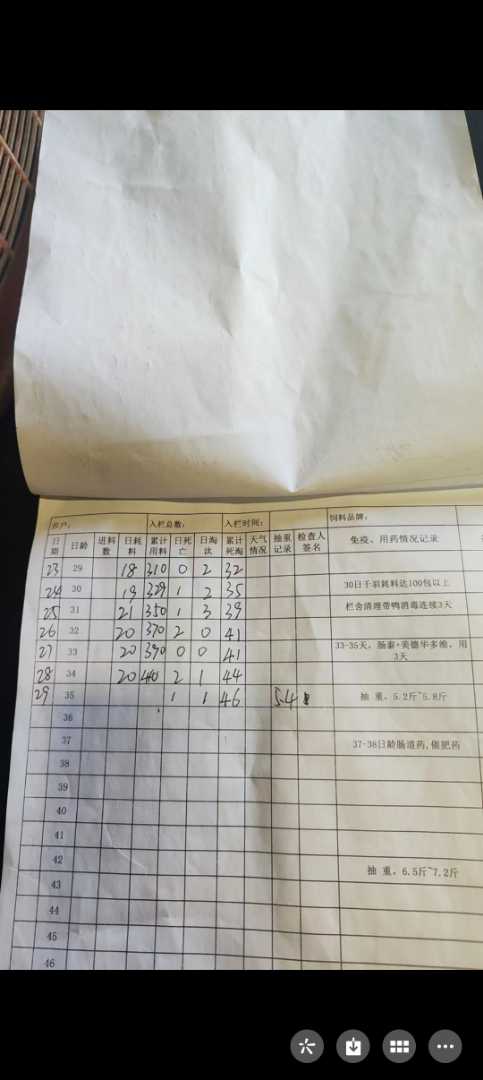 养户： 入栏总数： 入栏时间： 饲料品牌：
日期 日龄 进料数 日耗料 累计用料 日死亡 日淘汰 累计死淘 天气情况 抽重记录 检查人签名 免疫、用药情况记录
23 29 18 310 0 2 32
24 30 19 329 1 2 35 30日千羽耗料达100包以上
25 31 21 350 1 3 39 栏舍清理带鸭消毒连续3天
26 32 20 370 2 0 41
27 33 20 390 0 0 41 33-35天，肠泰+美德华多维，用3天
28 34 20 2 1 44
29 35 1 1 46 5.4 抽 重，5.2斤~5.8斤
36
37 37-38日龄肠道药,催肥药
38
39
40
41
42 抽 重，6.5斤~7.2斤
43
44
45
46